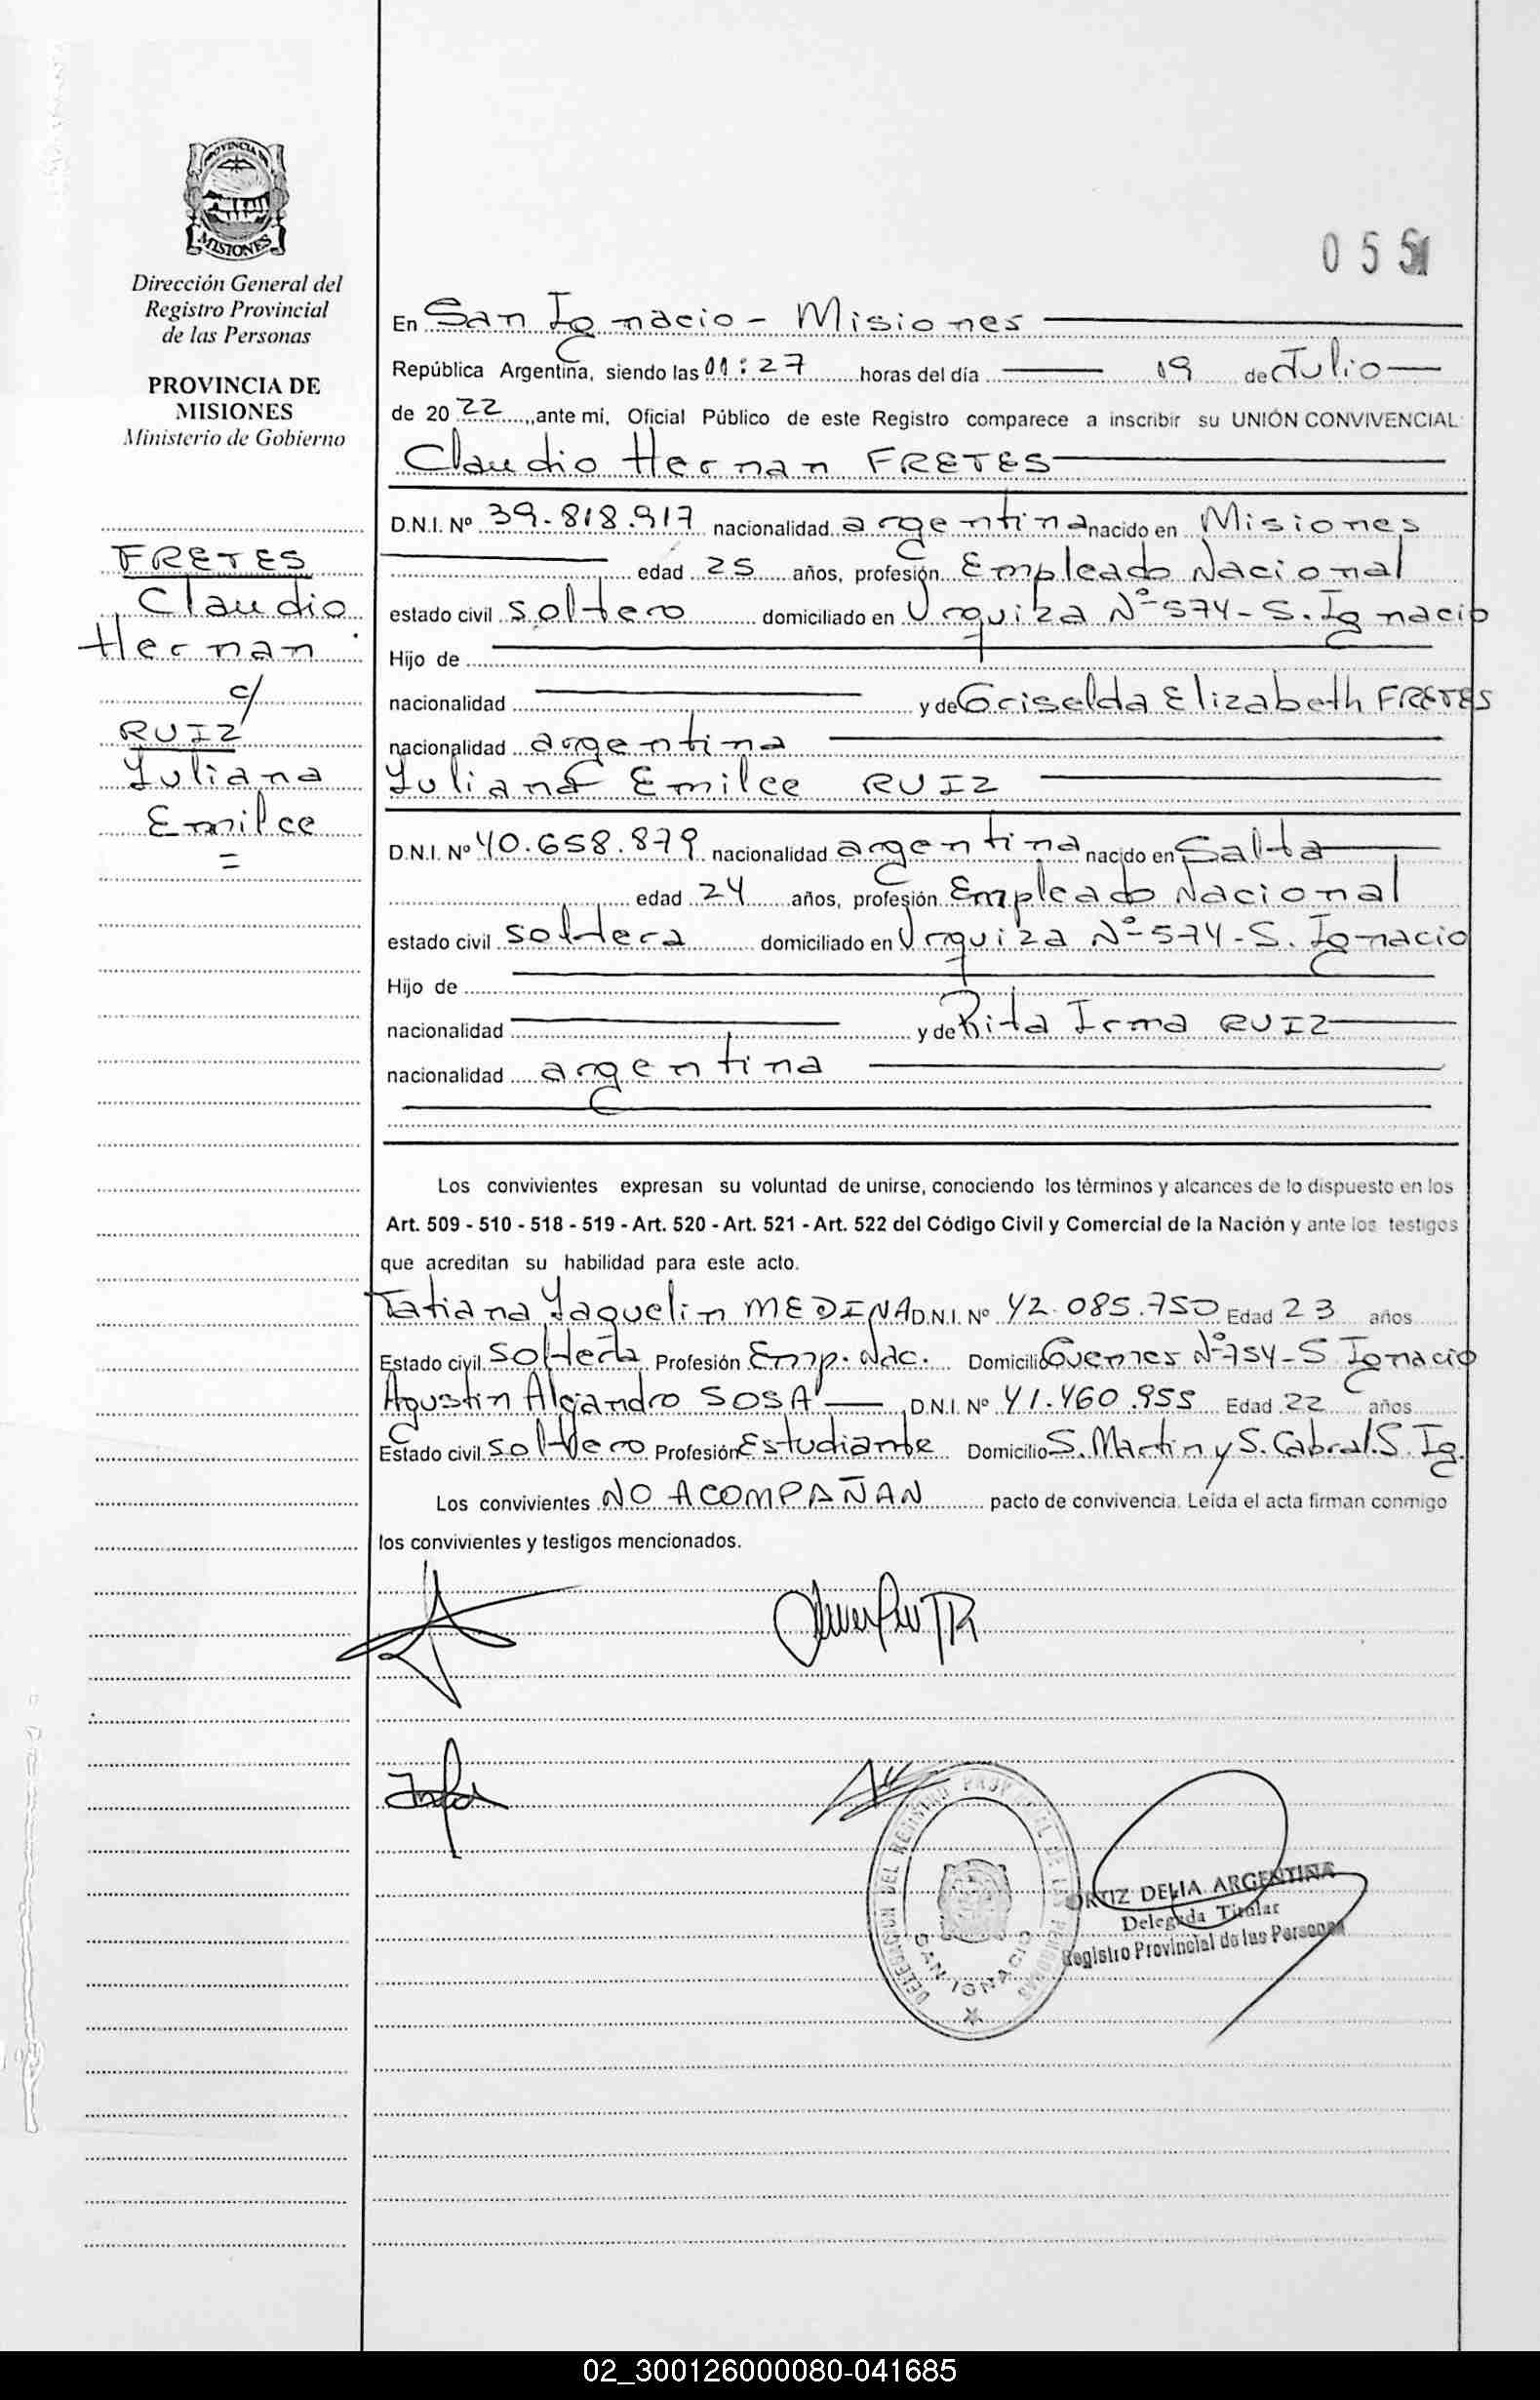 PROVINCIA DE
MISIONES
Dirección General del
Registro Provincial
de las Personas
PROVINCIA DE
MISIONES
Ministerio de Gobierno
FRETES
Claudio
Hernan
c/
RUIZ
Yuliana
Emilce
=
055
En San Ignacio - Misiones
República Argentina, siendo las 01:27 horas del día 19 de Julio
de 2022, ante mi, Oficial Público de este Registro comparece a inscribir su UNIÓN CONVIVENCIAL:
Claudio Hernan FRETES
D.N.I. Nº 39.818.917 nacionalidad argentina nacido en Misiones
edad 25 años, profesión Empleado Nacional
estado civil soltero domiciliado en Urquiza Nº 574 - S. Ignacio
Hijo de
nacionalidad y de Griselda Elizabeth FRETES
nacionalidad argentina
Yuliana Emilce RUIZ
D.N.I. Nº 40.658.879 nacionalidad argentina nacido en Salta
edad 24 años, profesión Empleado Nacional
estado civil soltera domiciliado en Urquiza Nº 574 - S. Ignacio
Hijo de
nacionalidad y de Rita Irma RUIZ
nacionalidad argentina
Los convivientes expresan su voluntad de unirse, conociendo los términos y alcances de lo dispuesto en los
Art. 509 - 510 - 518 - 519 - Art. 520 - Art. 521 - Art. 522 del Código Civil y Comercial de la Nación y ante los testigos
que acreditan su habilidad para este acto.
Tatiana Yaquelin MEDINA D.N.I. Nº 42.085.750 Edad 23 años
Estado civil soltera Profesión Emp. Nac. Domicilio Guemes Nº 754 - S Ignacio
Agustin Alejandro SOSA D.N.I. Nº 41.460.955 Edad 22 años
Estado civil soltero Profesión Estudiante Domicilio S. Martin y S. Cabral. S. Ig.
Los convivientes NO ACOMPAÑAN pacto de convivencia. Leída el acta firman conmigo
los convivientes y testigos mencionados.
DELEGACION DEL REGISTRO PROVINCIAL DE LAS PERSONAS
SAN IGNACIO
ORTIZ DELIA ARGENTINA
Delegada Titular
Registro Provincial de las Personas
02_300126000080-041685